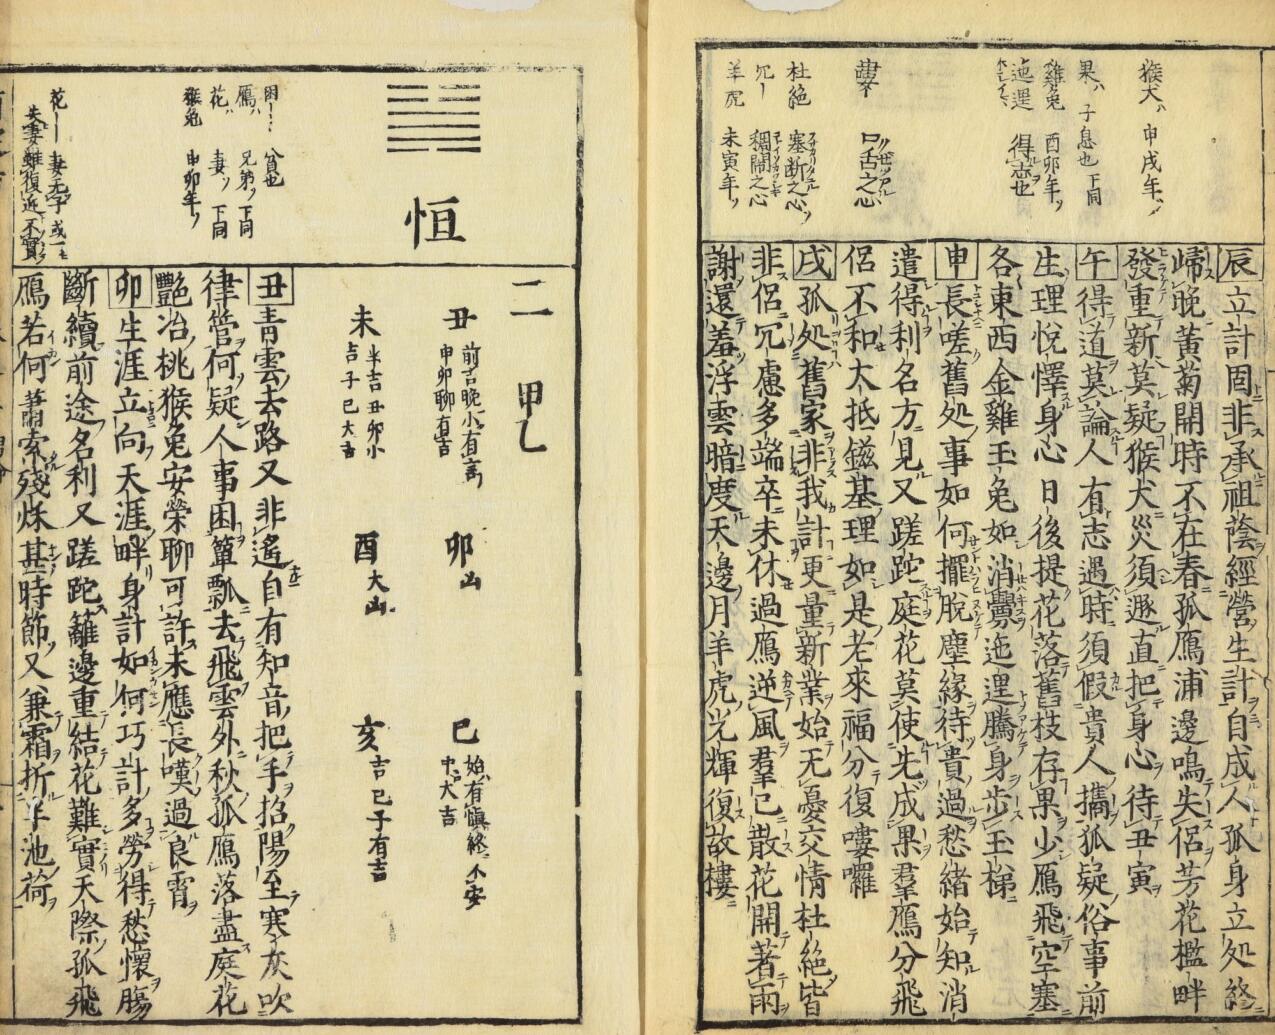 猴犬ハ 申戌年ノ
果ハ 子息也 下同
雞兔 酉卯年ノ
迤逞 得志也
口舌之心
杜絶 塞断之心
冗ー 稠閙之心
羊虎 未寅年ノ
辰立計固非承祖蔭經營生計自成人孤身立処終
歸晚黃菊開時不在春孤鴈浦邊鳴失侶芳花檻畔
發重新莫疑猴犬災須遯直把身心待丑寅
午得道莫論人有志遇時須假貴人攜狐疑俗事前
生理悅懌身心日後提花落舊枝存果少鴈飛空塞
各東西金雞玉兔如消釁迤逞騰身步玉梯
申長嗟舊処事如何擺脫塵緣待貴過愁緒始知消
遣得利名方見又蹉跎庭花莫使先成果羣鴈分飛
侶不和大抵鎡基理如是老來福分復嘍囉
戌孤処舊家非我計更量新業始无憂交情杜絶皆
非侣冗慮多端卒未休過鴈逆風羣已散花開著雨
謝還羞浮雲暗度天邊月羊虎光輝復故樓
恒
困ー 貧也
鴈ハ 兄弟ノ 下同
花ハ 妻ノ 下同
猴兔 申卯年ノ
花ー 妻无子或
夫妻難復近不實
二 甲乙
丑 前吉晚小有言 申卯聊有吉
卯 凶
巳 始有慎終不安 中大吉
未 半吉丑卯小 吉子巳大吉
酉 大凶
亥 吉巳子有吉
丑青雲去路又非遙自有知音把手招陽至寒灰吹
律管何疑人事困簞瓢去飛雲外秋孤鴈落盡庭花
艷冶桃猴兔安榮聊可許未應長嘆過良霄
卯生涯立向天涯畔身計如何巧計多勞得愁懷腸
斷續前途名利又蹉跎籬邊重結花難實天際孤飛
鴈若何蕭索殘秌甚時節又兼霜折半池荷